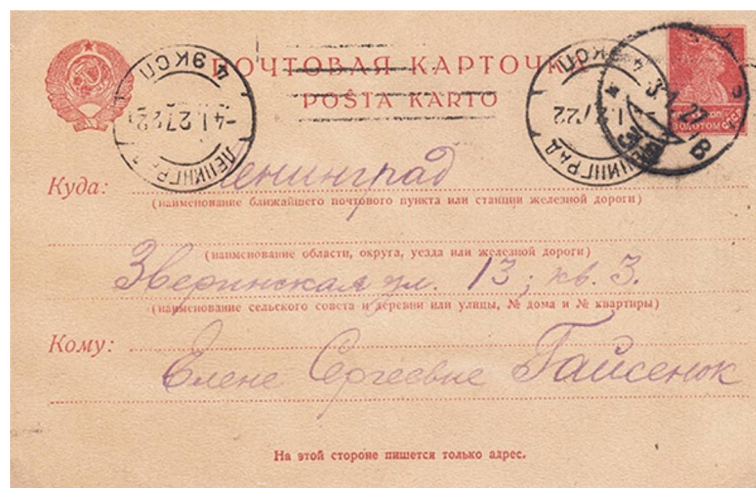 ПОЧТОВАЯ КАРТОЧКА
POŜTA KARTO
4 ЭКСП
-4.1.27 22
ЛЕНИНГРАД
4 ЭКСП
ЛЕНИНГРАД
3.1.27
В
ЗОЛОТОМ
Куда: Ленинград
(наименование ближайшего почтового пункта или станции железной дороги)
(наименование области, округа, уезда или железной дороги)
Зверинская ул. 13; кв. 3.
(наименование сельского совета и деревни или улицы, № дома и № квартиры)
Кому: Елене Сергеевне Гайсенюк
На этой стороне пишется только адрес.